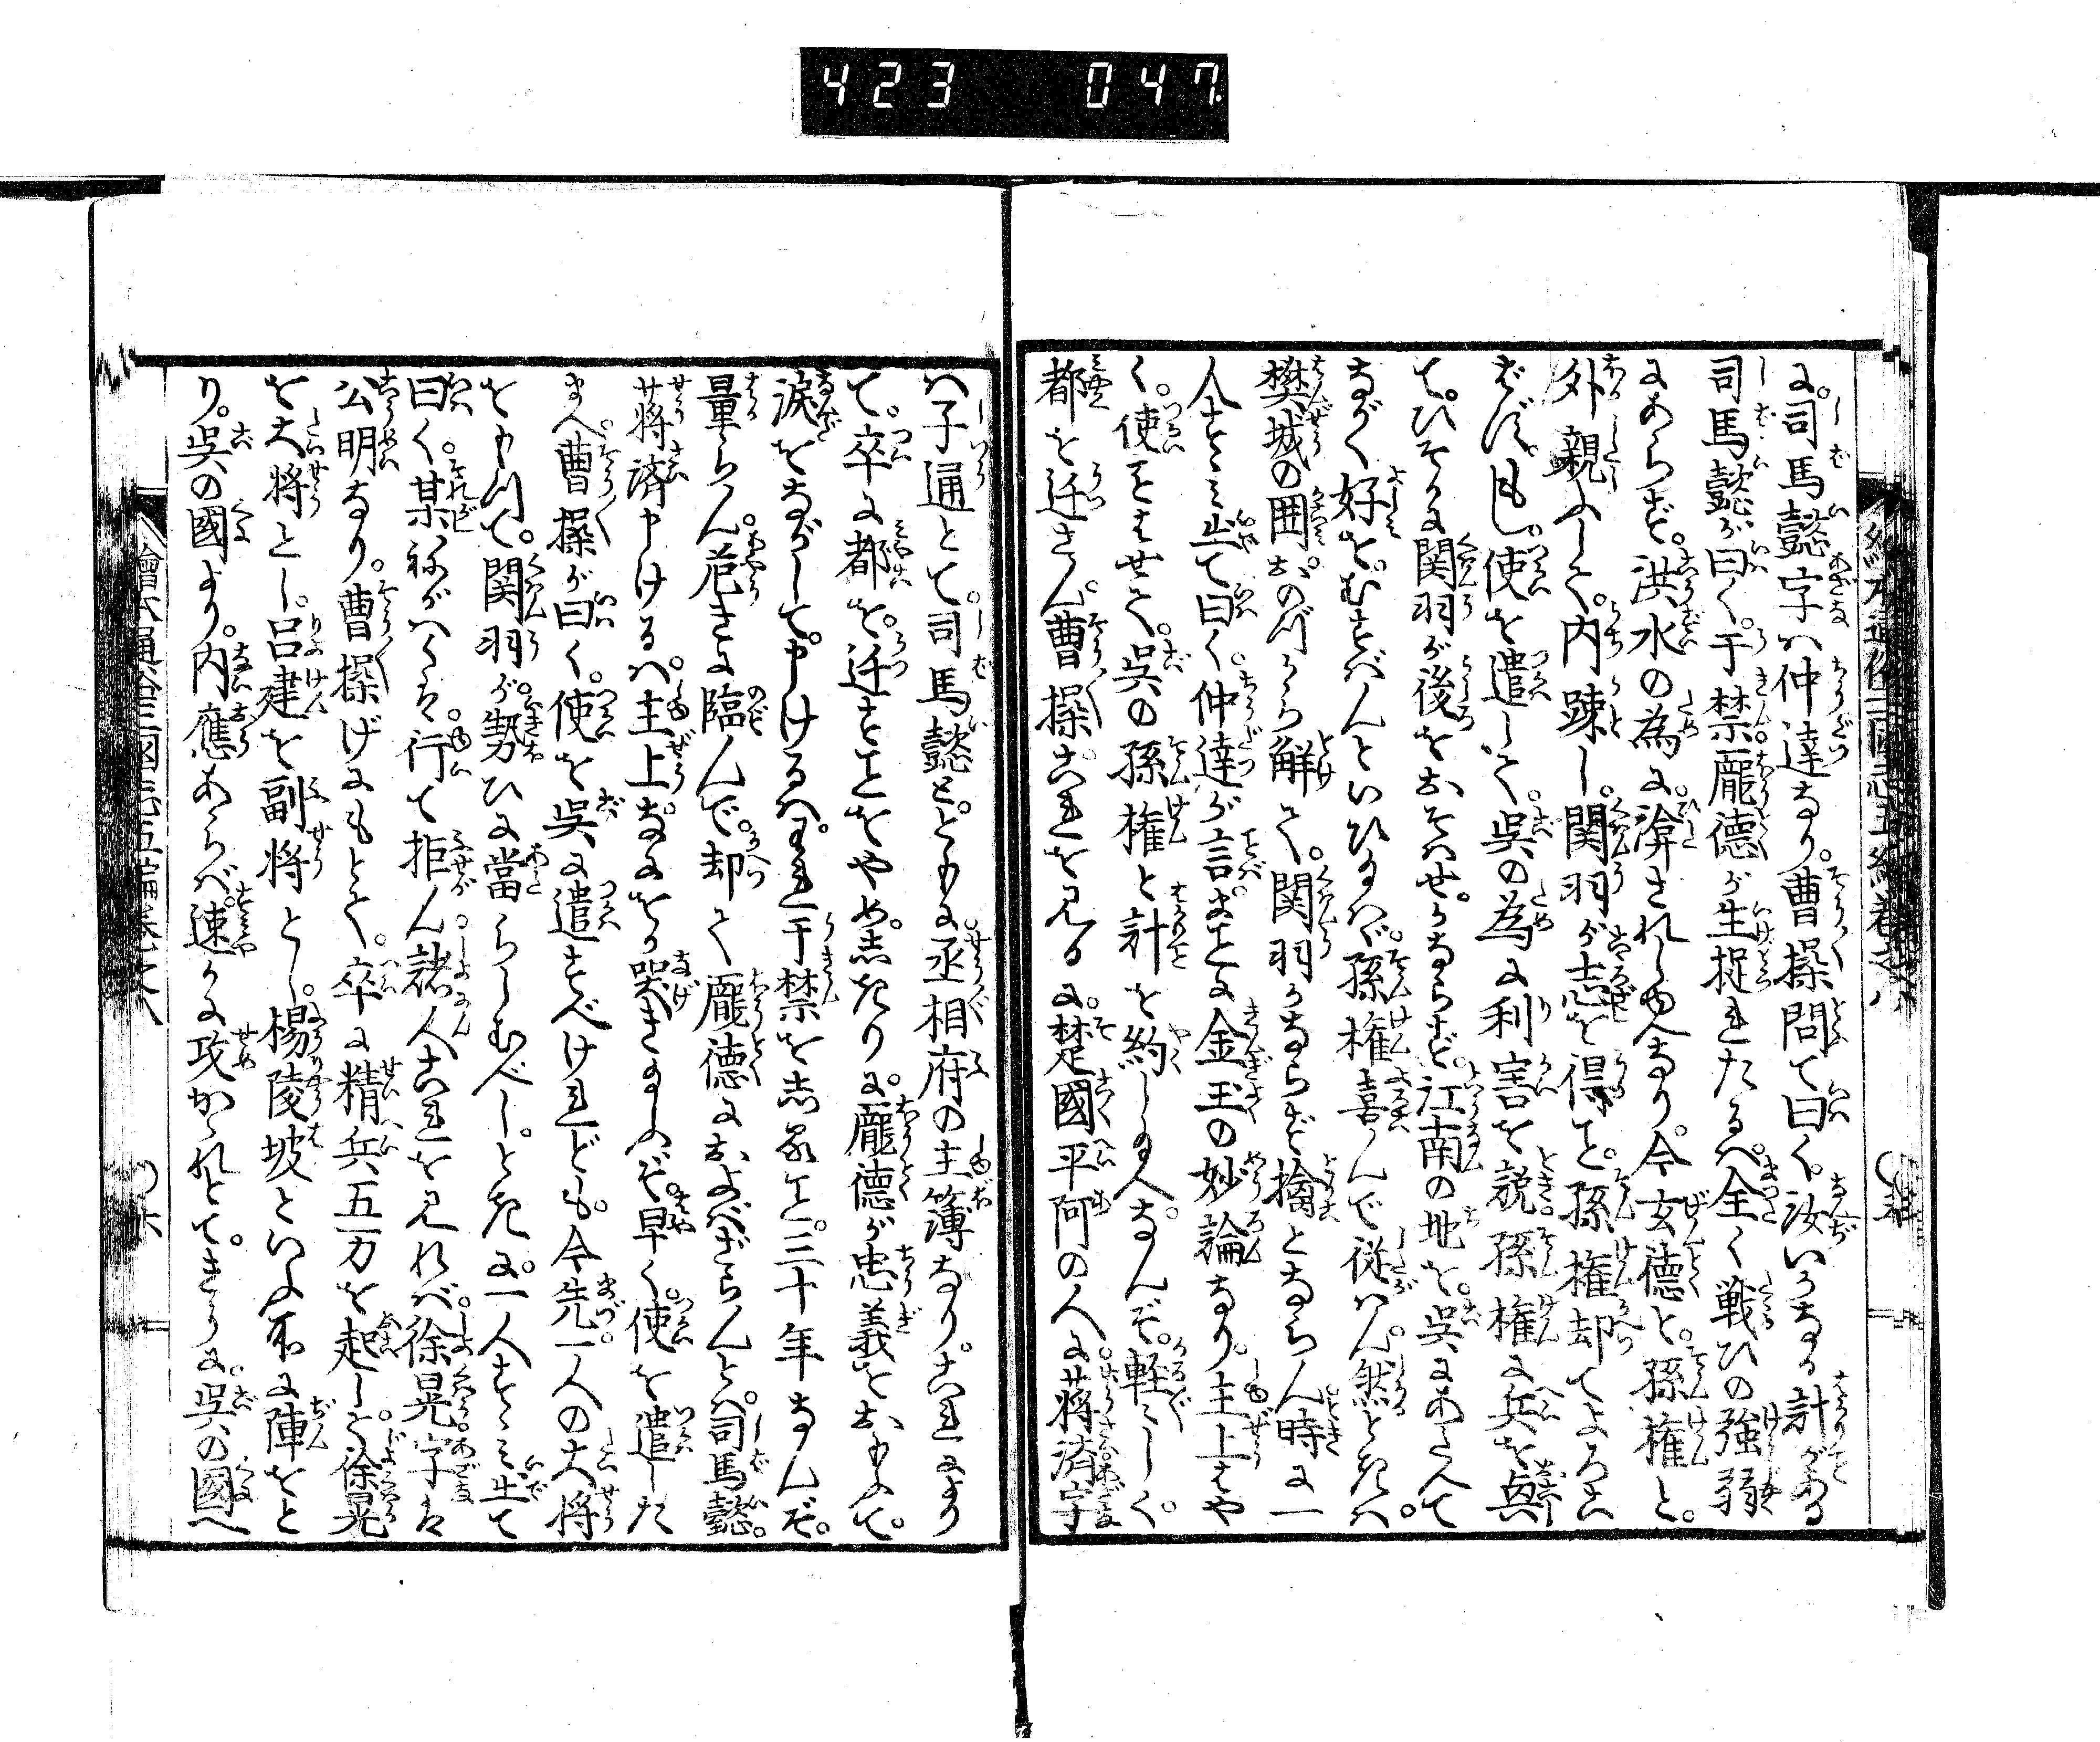 423 047.
に。司馬懿字ハ仲達なり。曹操問て曰く。汝いかなる計がある
司馬懿が曰く。于禁龐德が生捉れたるハ。全く戦ひの強弱
にあらず。洪水の為に渰されしゆへなり。今玄德と。孫権と。
外親ふして。内踈し。関羽が志を得ること。孫権却てよろこ
ばじ。もし。使を遣して。呉の為に利害を説。孫権に兵を與
て。ひそかに関羽が後をおそハせ。かならず。江南の地を。呉にあたへて
ながく好を。むすばんといひなバ。孫権喜んで従ハん。然るときハ。
樊城の囲おのづから觧て。関羽かならず擒とならん時に一
人すゝミ出て曰く。仲達が言まことに金玉の妙論なり。主上はや
く。使をはせて。呉の孫権と計を約し給へ。なんぞ。軽〻しく。
都を迁さん。曹操これを見るに。楚國平阿の人に。蒋済字
ハ子通とて。司馬懿と。ともに。丞相府の主簿なり。これにより
て。卒に都を。迁すことをやめしたりに。龐德が忠義をおもふて。
涙をながして。申けるハ。われ于禁をしること。三十年なんぞ。
量らん。危きに臨んで。却て龐德におよばざらんとハ。司馬懿。
蒋済申けるハ。主上。なにをか哭き給ふぞ。早く。使を遣した
まへ。曹操が曰く。使を呉に遣すべけれども。今先。一人の大将
をもつて。関羽が。勢ひに當らしむべし。ときに。一人すゝミ出て
曰く。某ねがハくは。行て拒ん。諸人これを見れバ。徐晃字は
公明なり。曹操げにもとて。卒に精兵五万を起して。徐晃
を大将とし。呂建を副将とし。楊陵坡といふ所に陣をと
り。呉の國より。内應あらバ。速かに攻かゝれとて。きうに。呉の國へ